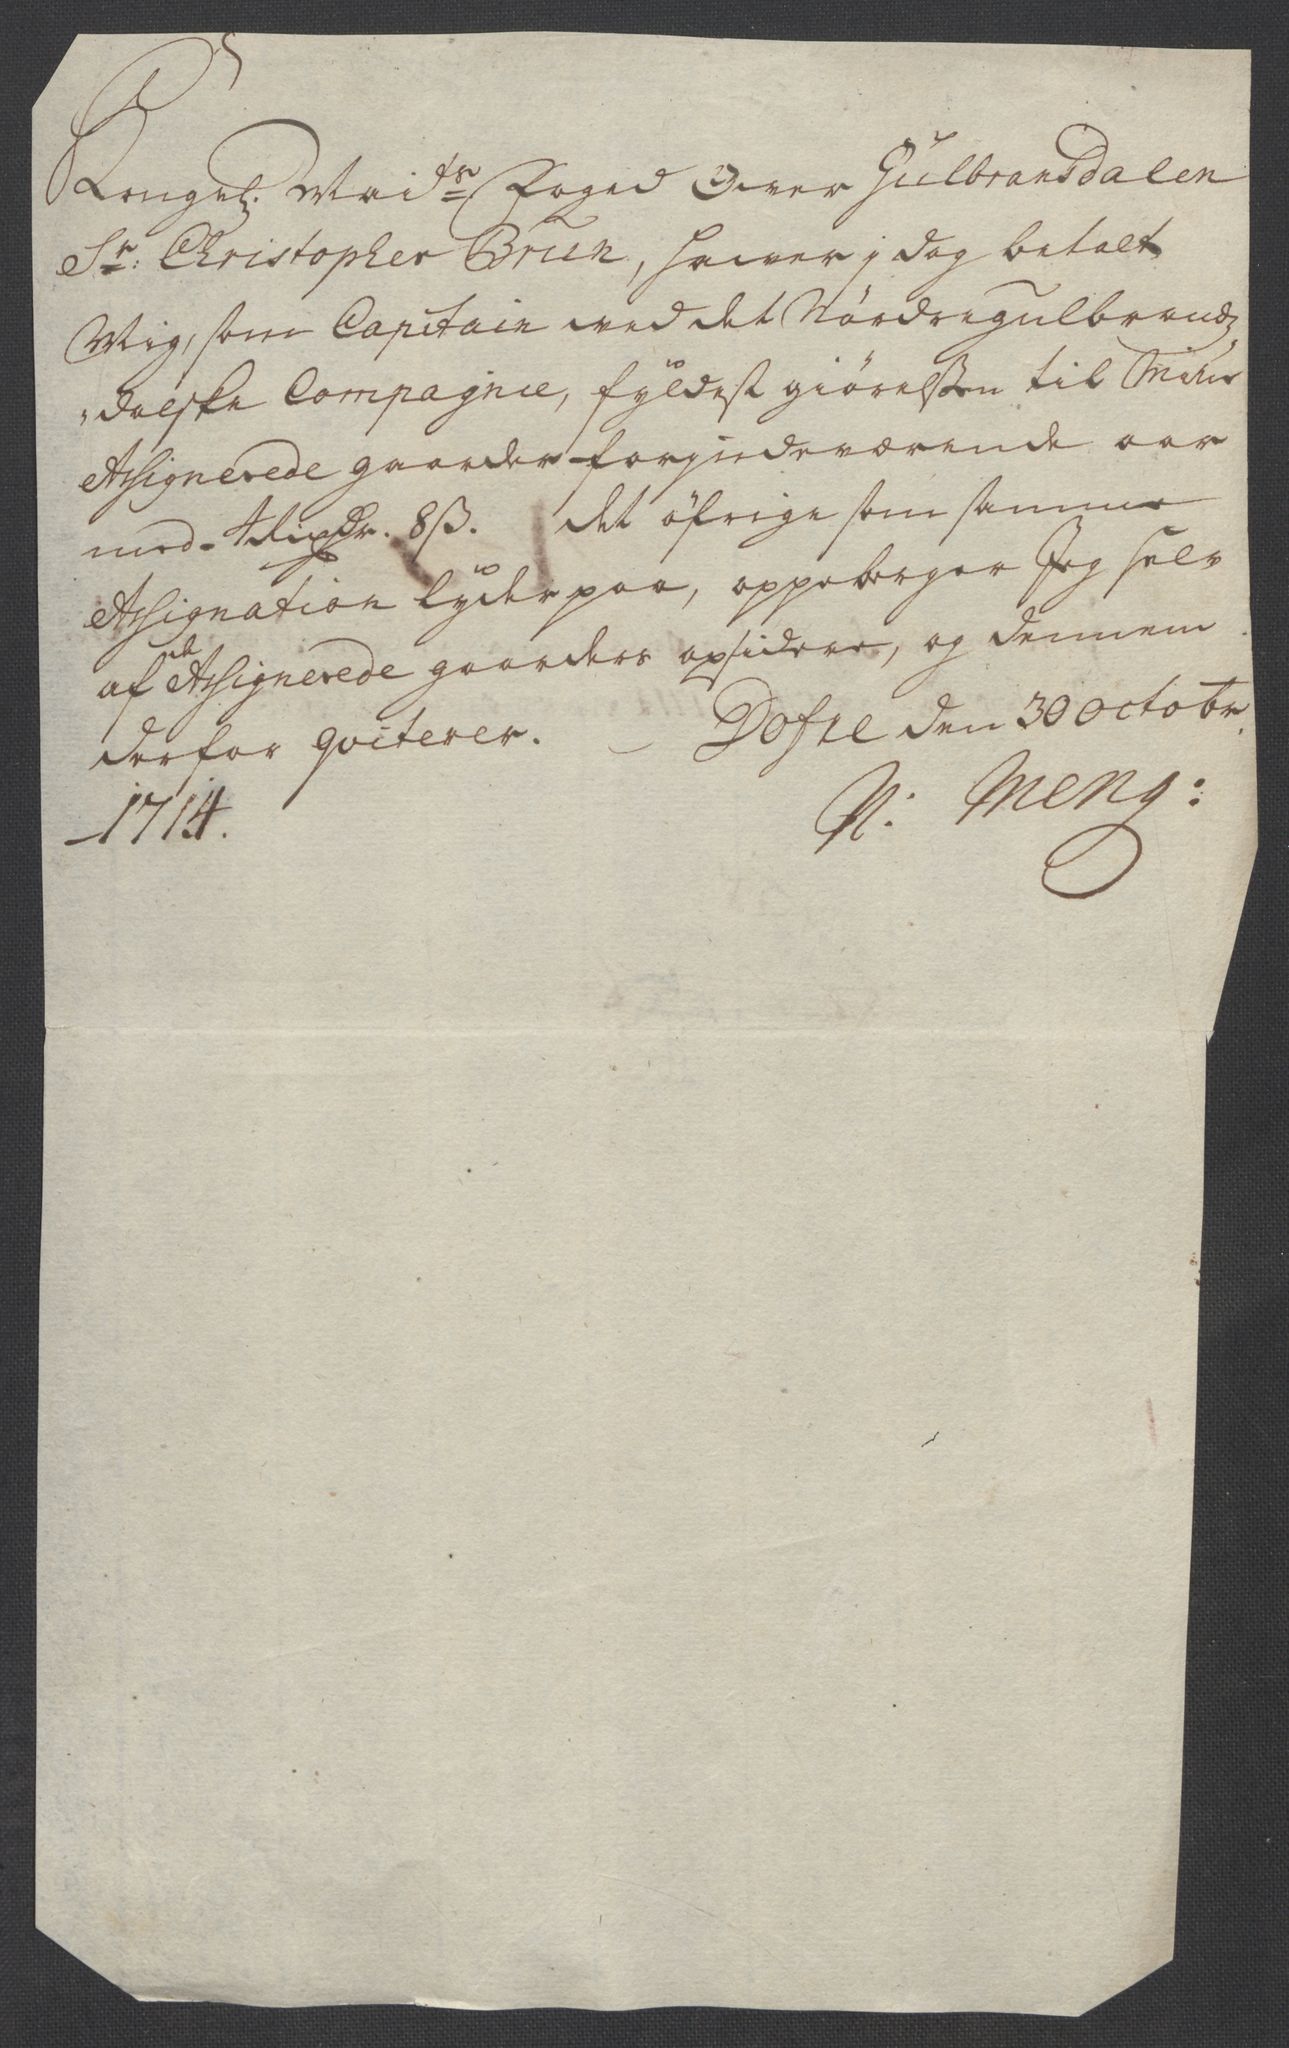 Kongel. Maids Foged Over Gulbransdalen
Sr: Christopher Brun, hawer j dag betalt
Mig, som Capitain wed det Nördregulbrands
dalske Compagnie, fyldest giörelßen til Mine
Assignerede gaarder for jndeværende aar
med 4 Rixdr. 8 ß. det öfrige som samme
Assignation lyder paa, oppeberger Jeg selv
af de Assignerede gaarders opsidere, og dennem
derfor qviterer. Dofre den 30 octobr.
1714.
N: Meng: